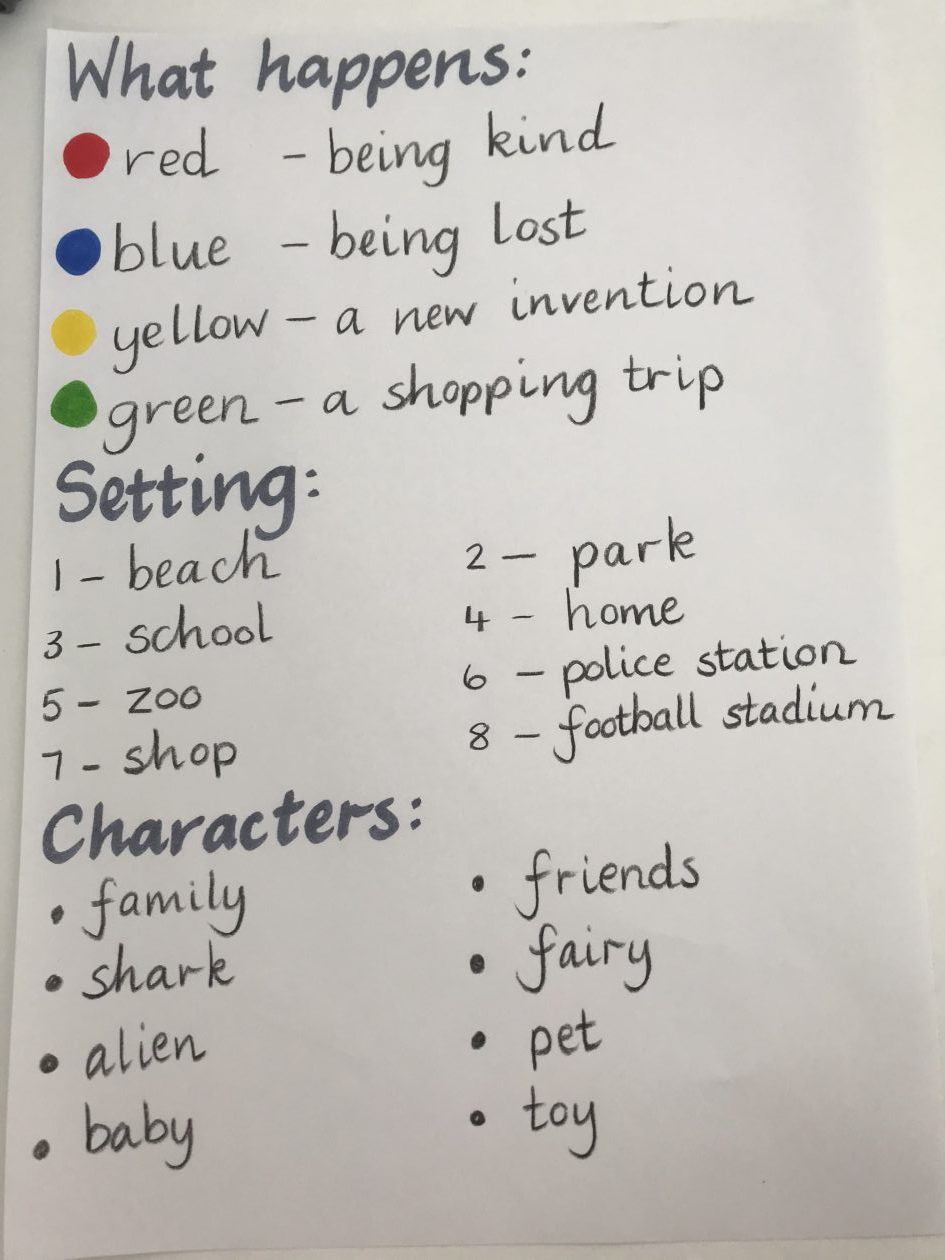 What happens:
red - being kind
blue - being lost
yellow - a new invention
green - a shopping trip
Setting:
1 - beach 2 - park
3 - school 4 - home
5 - zoo 6 - police station
7 - shop 8 - football stadium
Characters:
• family • friends
• shark • fairy
• alien • pet
• baby • toy